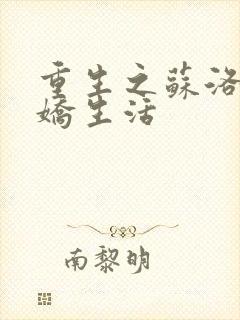 重生之蘇洛
嬌生活
南黎明